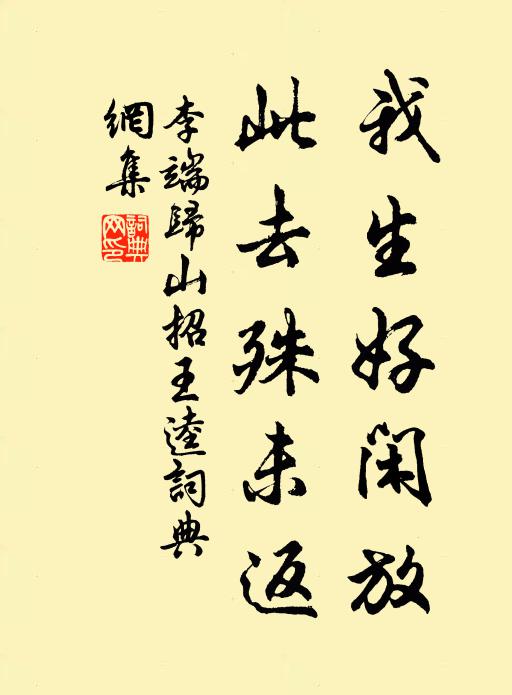 我生好閑放
此去殊未返
李端歸山招王逵詞典
網集
詞典網印